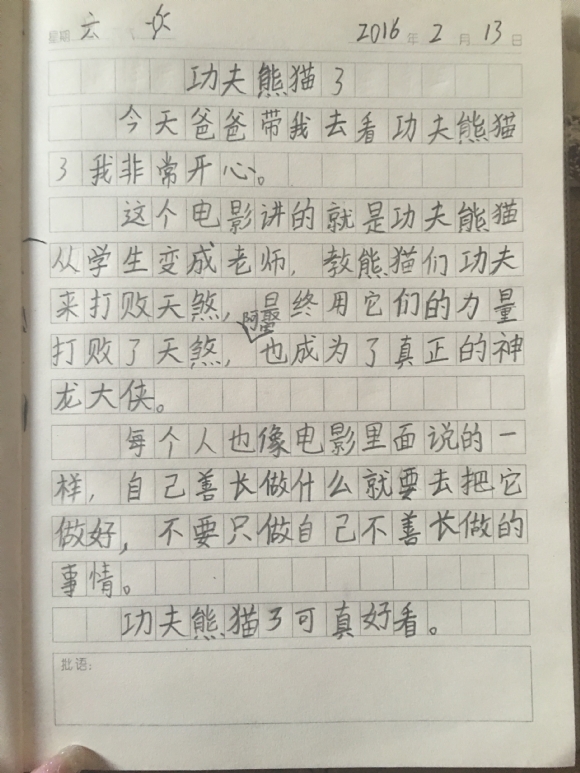 星期 六 2016 年 2 月 13 日
功夫熊猫3
今天爸爸带我去看功夫熊猫
3我非常开心。
这个电影讲的就是功夫熊猫
从学生变成老师，教熊猫们功夫
来打败天煞，最终用它们的力量
打败了天煞，阿宝也成为了真正的神
龙大侠。
每个人也像电影里面说的一
样，自己善长做什么就要去把它
做好，不要只做自己不善长做的
事情。
功夫熊猫3可真好看。
批语：